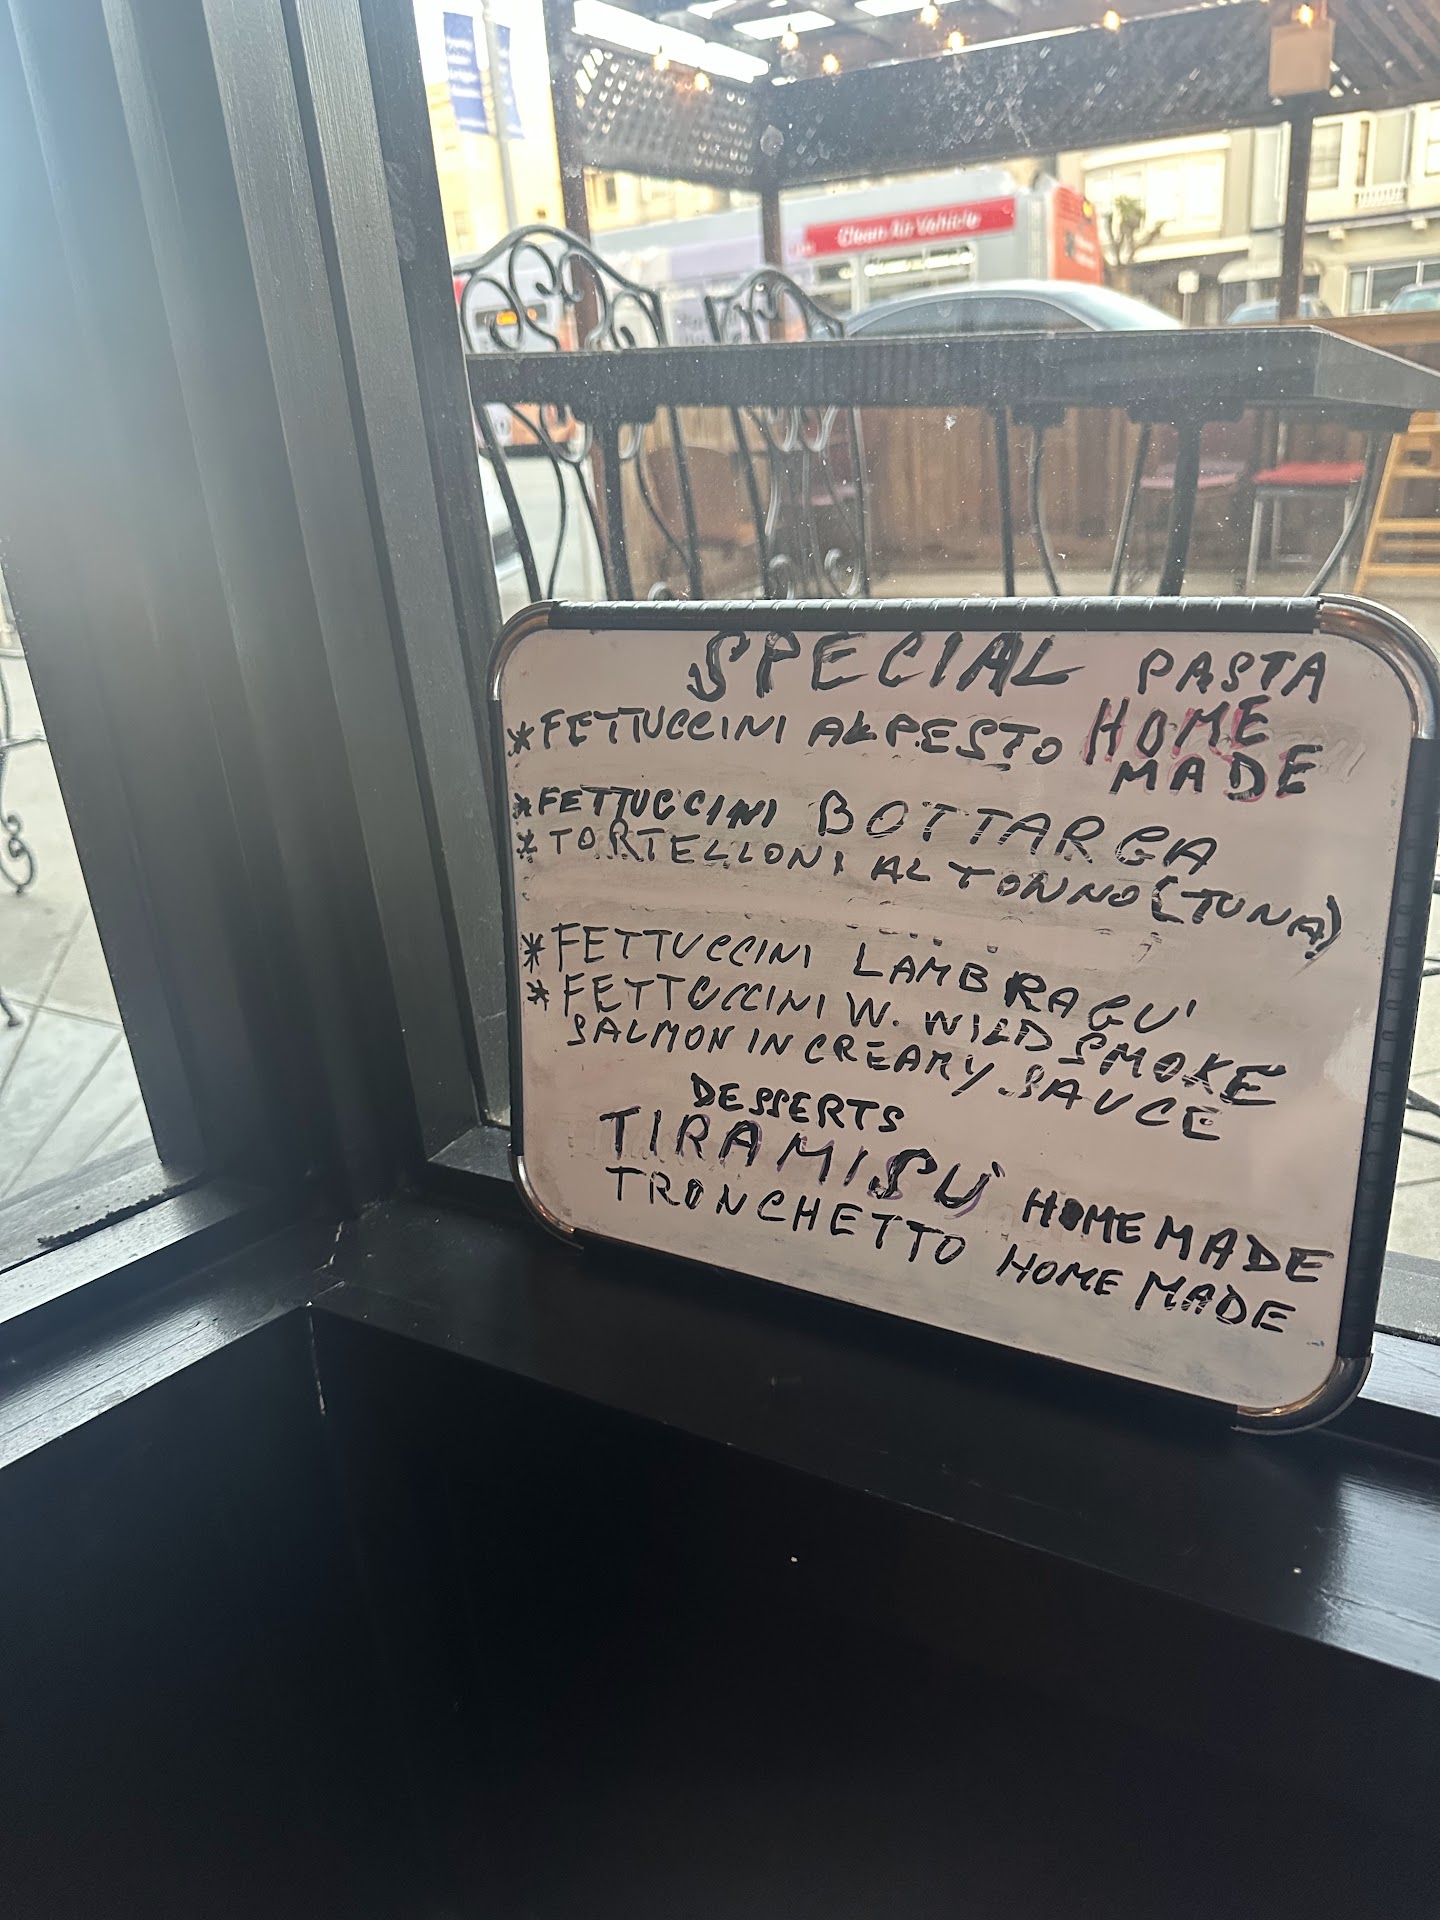 Clean Air Vehicle
SPECIAL PASTA
* FETTUCCINI AL PESTO HOME
MADE
* FETTUCCINI BOTTARGA
* TORTELLONI AL TONNO (TUNA)
* FETTUCCINI LAMB RAGU'
* FETTUCCINI W. WILD SMOKE
SALMON IN CREAMY SAUCE
DESSERTS
TIRAMISÙ HOMEMADE
TRONCHETTO HOME MADE